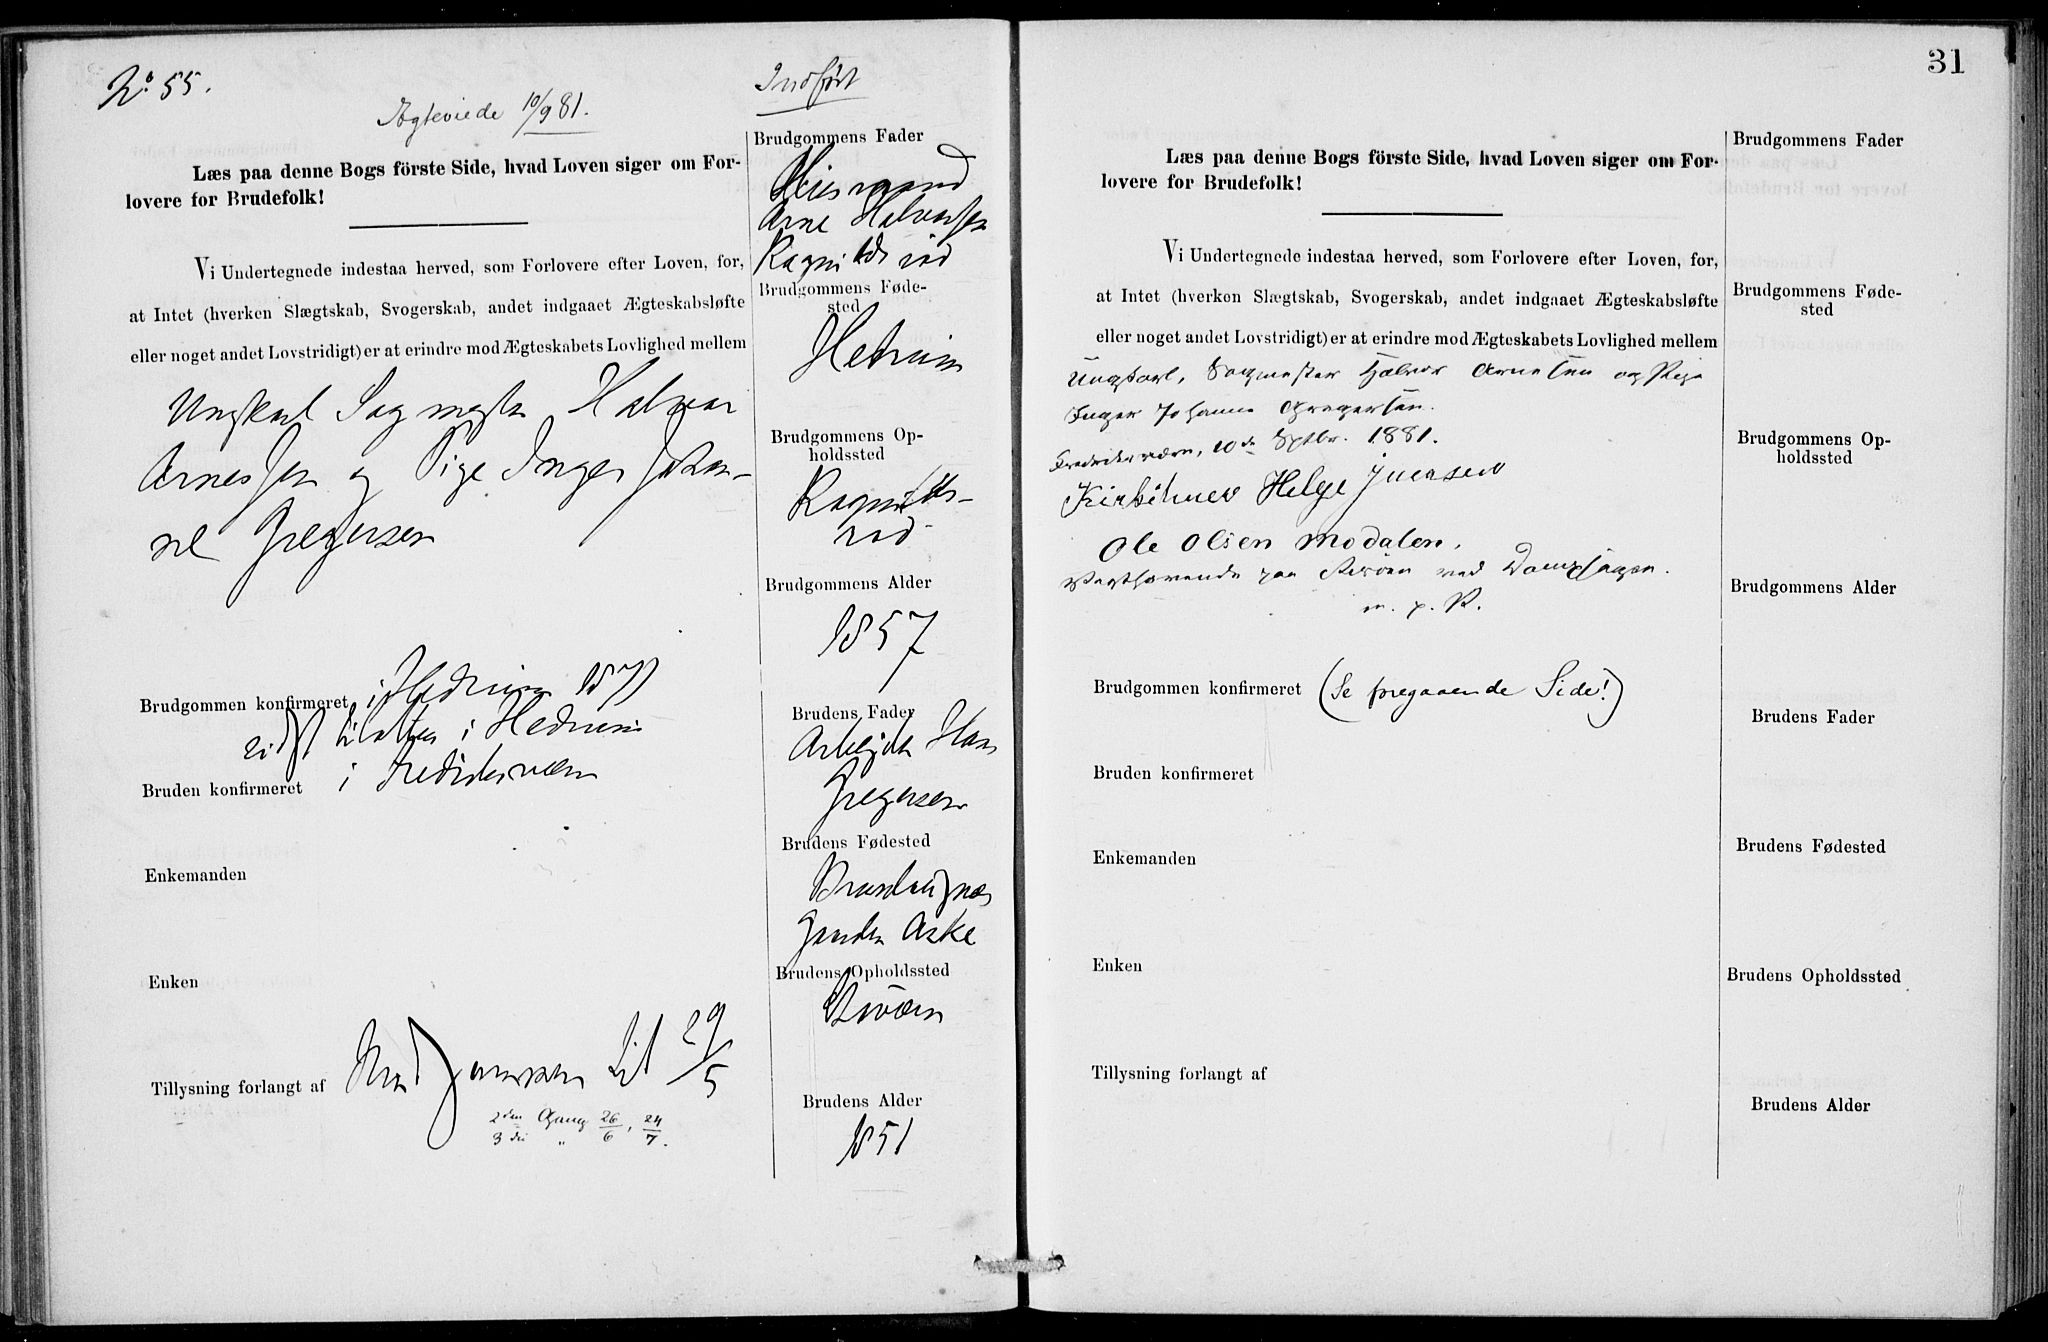 No 55.
Ægteviede 10/9 81.
Indført
Læs paa denne Bogs förste Side, hvad Loven siger om For-
lovere for Brudefolk!
Vi Undertegnede indestaa herved, som Forlovere efter Loven, for,
at Intet (hverken Slægtskab, Svogerskab, andet indgaaet Ægteskabsløfte
eller noget andet Lovstridigt) er at erindre mod Ægteskabets Lovlighed mellem
Ungkarl Sagmester Halvor
Arnessen og Pige Inger Johan-
ne Gregersen
Brudgommen konfirmeret i Hedrum
i Hedrum
Bruden konfirmeret i Fredriksværn
Enkemanden
Enken
Tillysning forlangt af 29/5
2den Gang 26/6, 24/7.
3die "
Brudgommens Fader
Huusmand
Arne Halvorsen
Ragnildsrød
Brudgommens Føde-
sted
Hedrum
Brudgommens Op-
holdssted
Ragnilds-
rød
Brudgommens Alder
1857
Brudens Fader
Arbejder Hans
Gregersen
Brudens Fødested
Aske
Brudens Opholdssted
Brudens Alder
1851
31
Læs paa denne Bogs förste Side, hvad Loven siger om For-
lovere for Brudefolk!
Vi Undertegnede indestaa herved, som Forlovere efter Loven, for,
at Intet (hverken Slægtskab, Svogerskab, andet indgaaet Ægteskabsløfte
eller noget andet Lovstridigt) er at erindre mod Ægteskabets Lovlighed mellem
Ungkarl, Sagmester Halvor Arnesen og Pige
Inger Johanne Gregersen.
Fredriksværn, 10de Septbr. 1881.
Kirketjener Helge Iversen
Ole Olsen Modalen,
paa ved
m. p. P.
Brudgommen konfirmeret (Se foregaaende Side!)
Bruden konfirmeret
Enkemanden
Enken
Tillysning forlangt af
Brudgommens Fader
Brudgommens Føde-
sted
Brudgommens Op-
holdssted
Brudgommens Alder
Brudens Fader
Brudens Fødested
Brudens Opholdssted
Brudens Alder